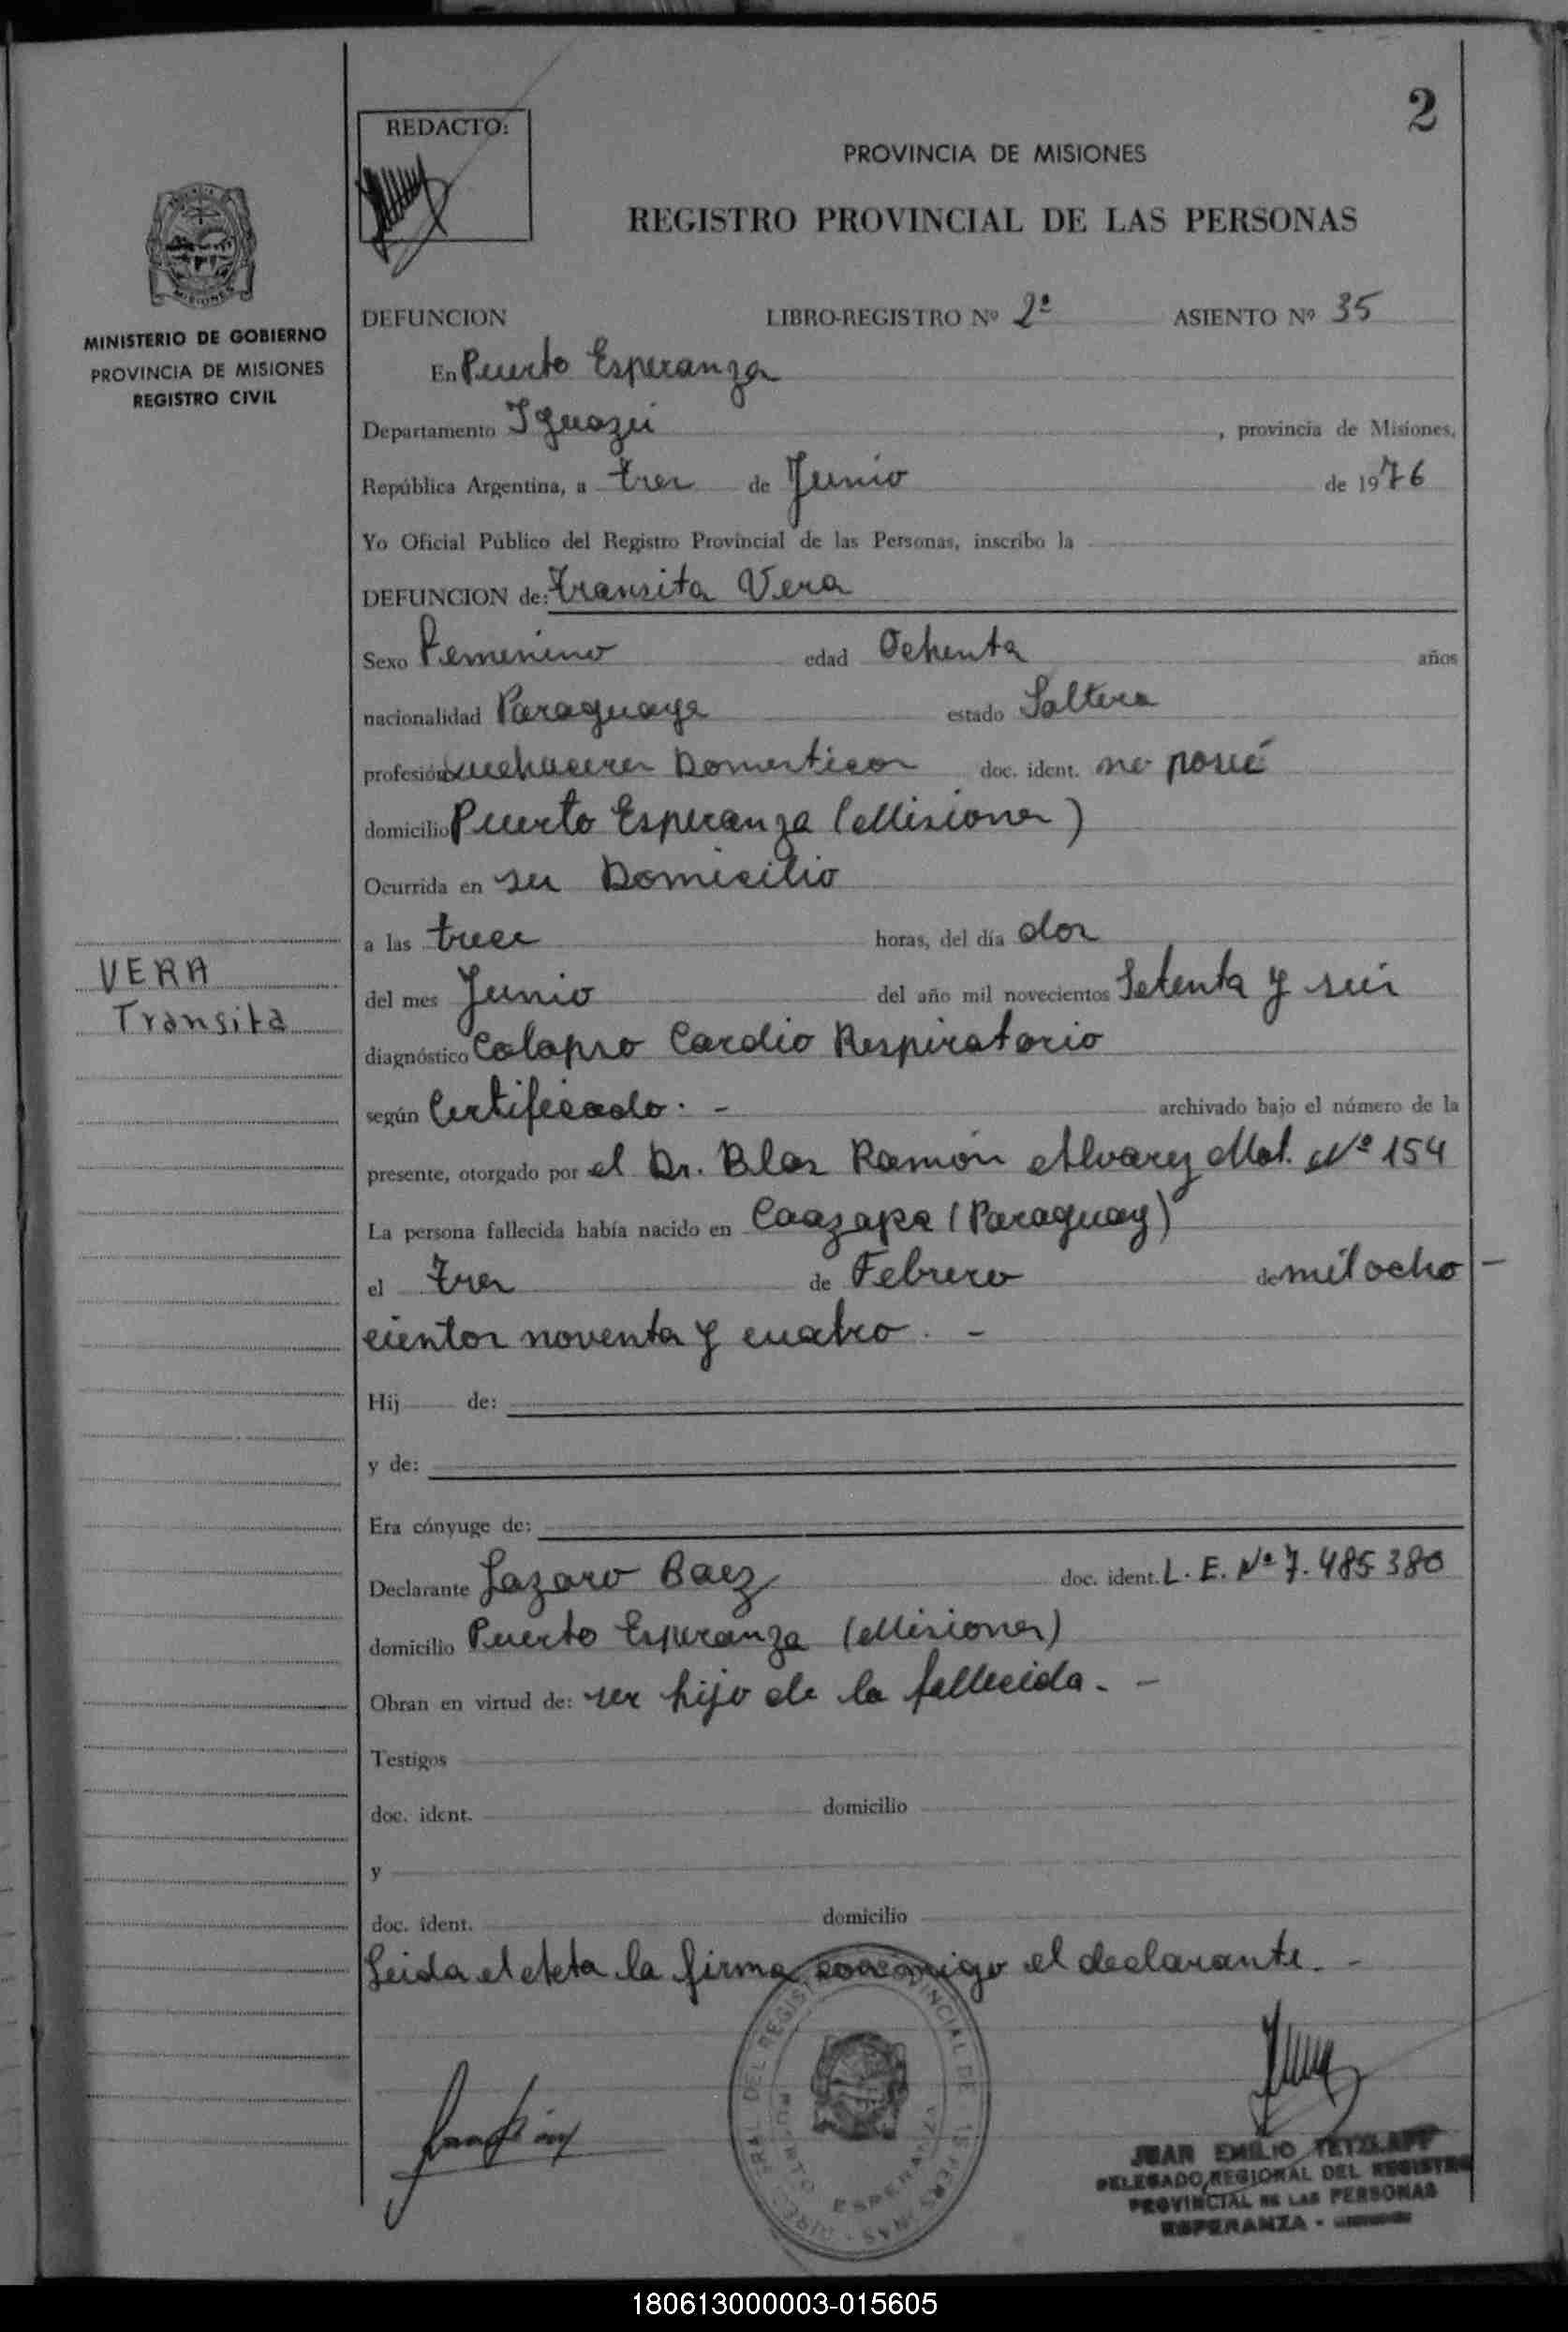 2
REDACTO:
PROVINCIA DE MISIONES
REGISTRO PROVINCIAL DE LAS PERSONAS
MISIONES
MINISTERIO DE GOBIERNO
PROVINCIA DE MISIONES
REGISTRO CIVIL
DEFUNCION LIBRO-REGISTRO Nº 2º ASIENTO Nº 35
En Puerto Esperanza
Departamento Iguazú, provincia de Misiones,
República Argentina, a tres de Junio de 1976
Yo Oficial Público del Registro Provincial de las Personas, inscribo la
DEFUNCION de: Transita Vera
Sexo Femenino edad Ochenta años
nacionalidad Paraguaya estado Soltera
profesión quehaceres Domesticos doc. ident. no posee
domicilio Puerto Esperanza (Misiones)
Ocurrida en su Domicilio
a las trece horas, del día dos
del mes Junio del año mil novecientos Setenta y seis
VERA
Transita
diagnóstico Colapso Cardio Respiratorio
según Certificado. - archivado bajo el número de la
presente, otorgado por el Dr. Blas Ramón Alvarez Mat. Nº 154
La persona fallecida había nacido en Caazapa (Paraguay)
el tres de Febrero de mil ocho -
cientos noventa y cuatro. -
Hij de:
y de:
Era cónyuge de:
Declarante Lazaro Baez doc. ident. L. E. Nº 7.485380
domicilio Puerto Esperanza (Misiones)
Obran en virtud de: ser hijo de la fallecida. -
Testigos
doc. ident. domicilio
y
doc. ident. domicilio
Leida el Acta la firma conmigo el declarante. -
DEL REGISTRO PROVINCIAL DE LAS PERSONAS
PUERTO ESPERANZA
JUAN EMILIO TETZLAFF
DELEGADO REGIONAL DEL REGISTRO
PROVINCIAL DE LAS PERSONAS
ESPERANZA -
180613000003-015605